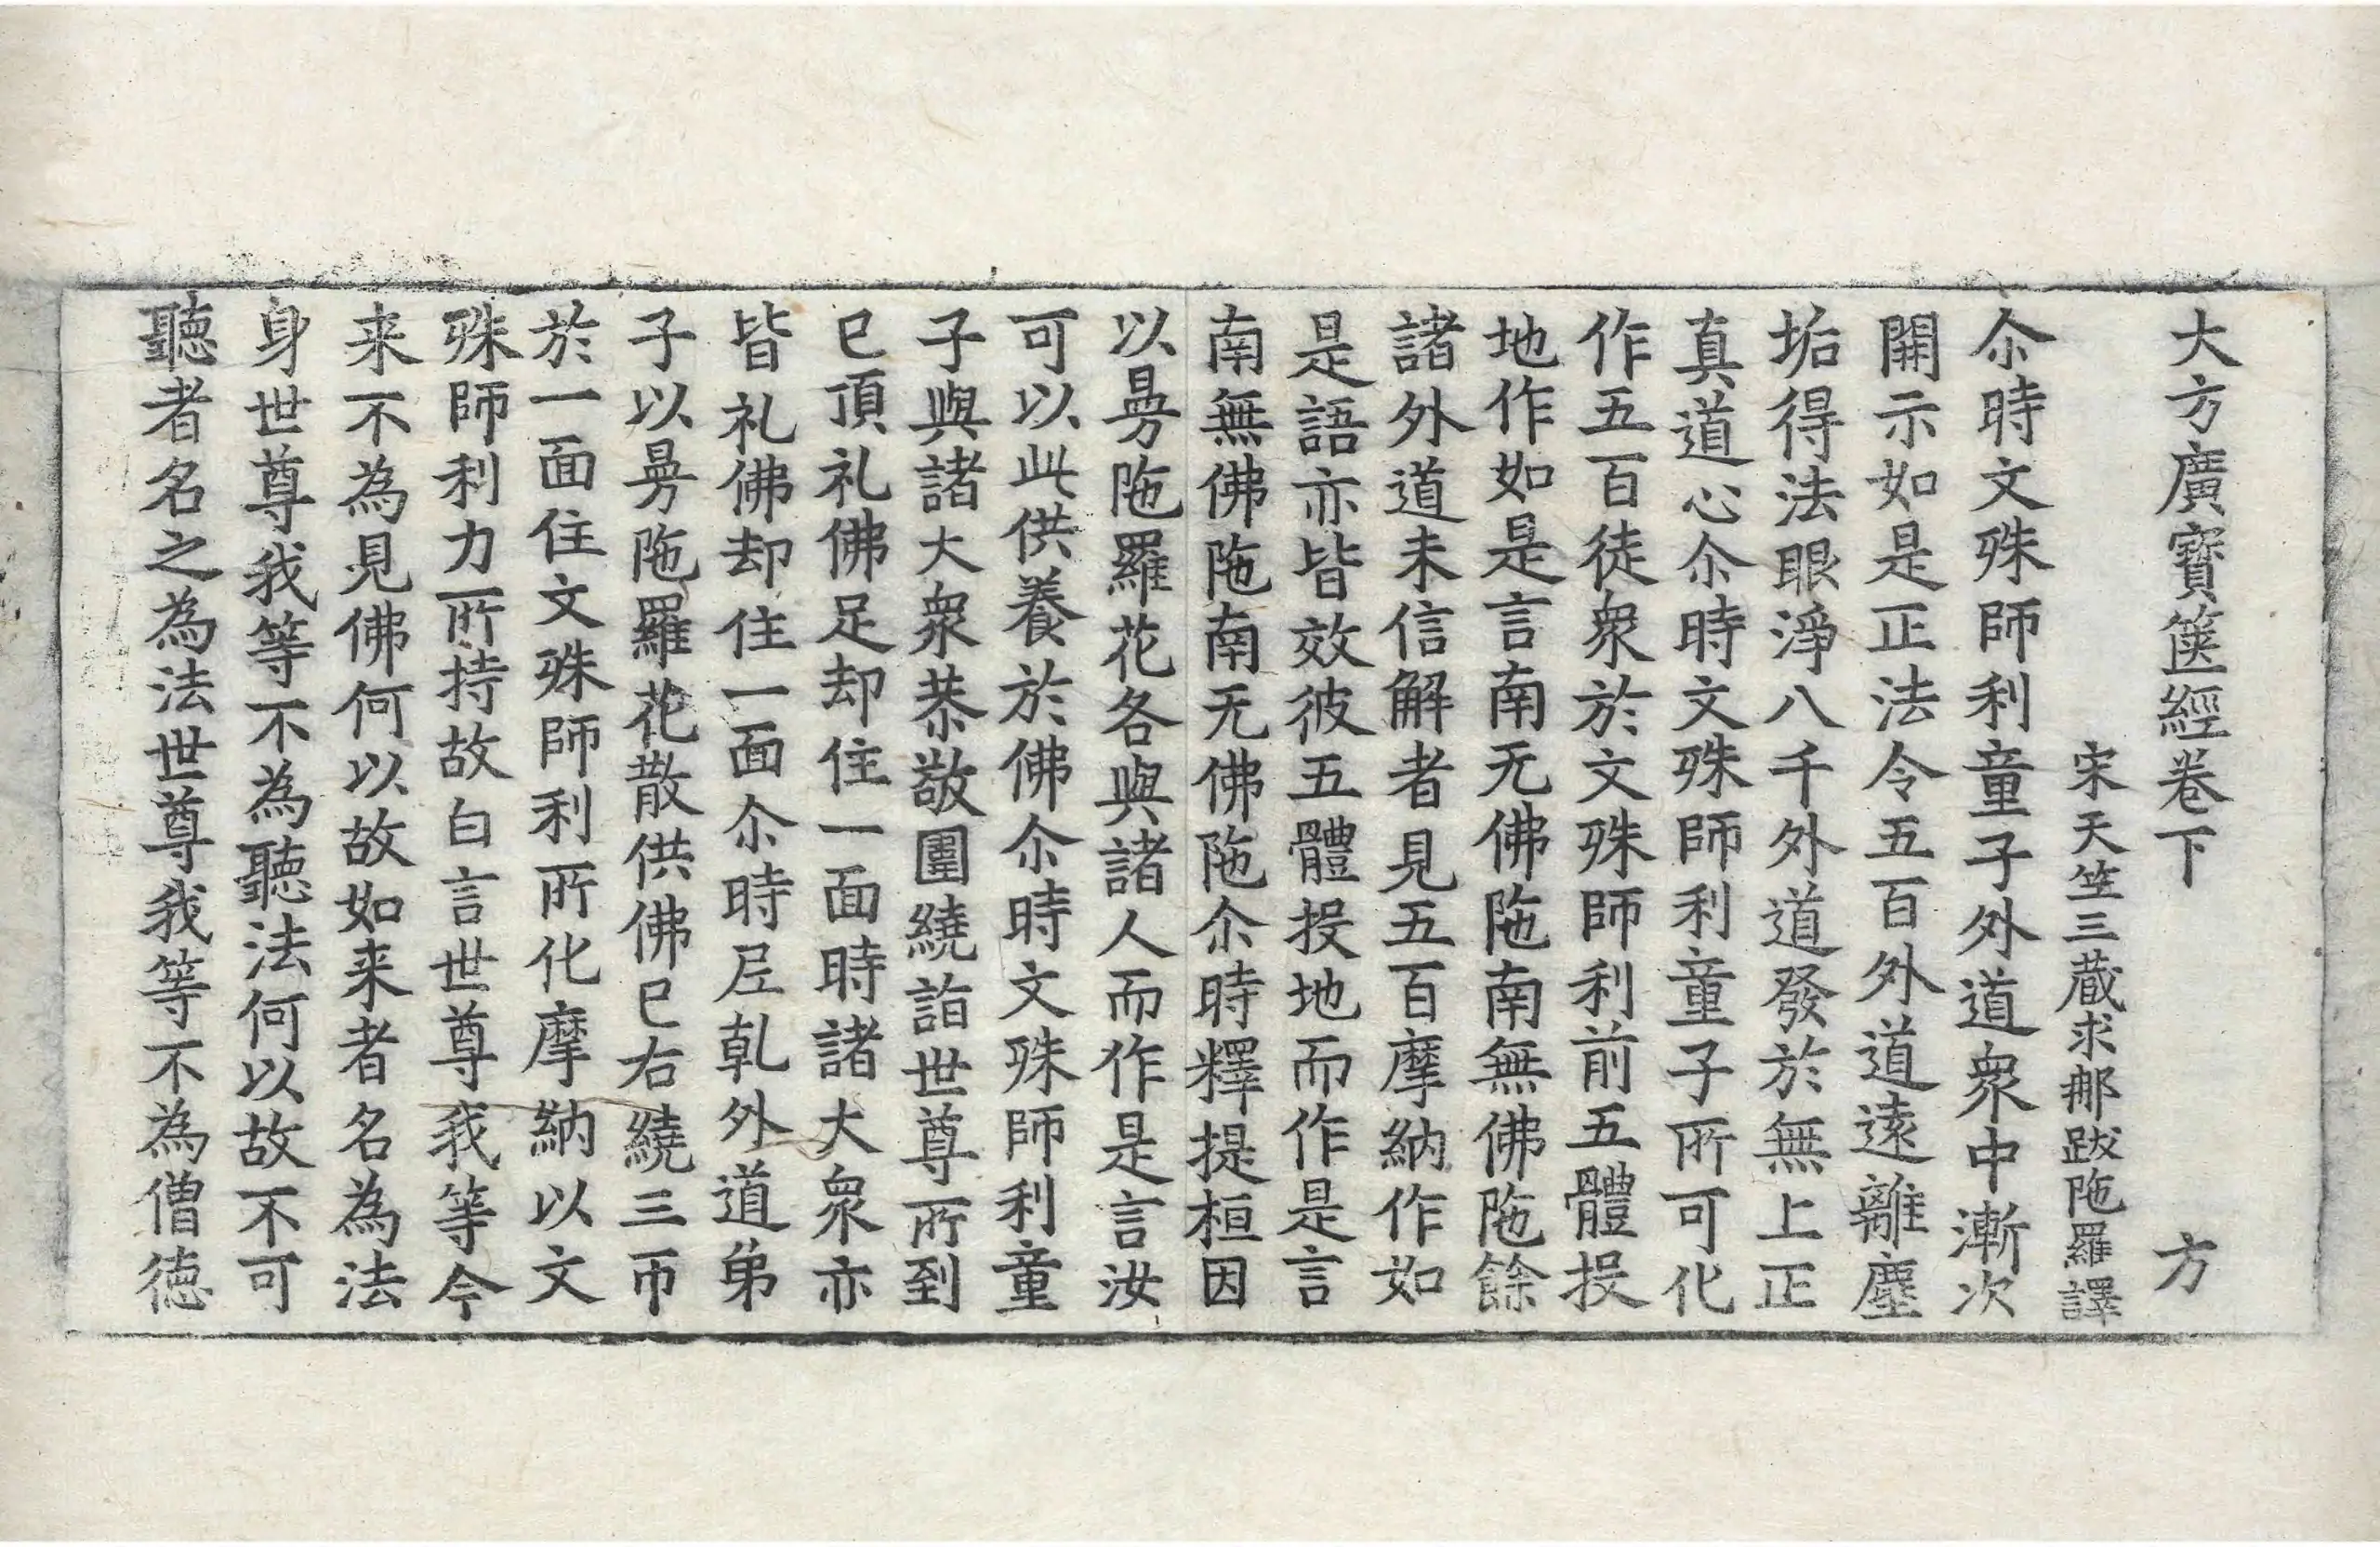 大方廣寶篋經卷下　方
宋天竺三蔵求那跋陁羅譯
尒時文殊師利童子外道衆中漸次
開示如是正法令五百外道遠離塵
垢得法眼淨八千外道發於無上正
真道心尒時文殊師利童子所可化
作五百徒衆於文殊師利前五體投
地作如是言南无佛陁南無佛陁餘
諸外道未信解者見五百摩納作如
是語亦皆效彼五體投地而作是言
南無佛陁南无佛陁尒時釋提桓因
以曼陁羅花各與諸人而作是言汝
可以此供養於佛尒時文殊師利童
子與諸大衆恭敬圍繞詣世尊所到
已頂礼佛足却住一面時諸大衆亦
皆礼佛却住一面尒時尼乹外道弟
子以曼陁羅花散供佛已右繞三帀
於一面住文殊師利所化摩納以文
殊師利力所持故白言世尊我等今
来不為見佛何以故如来者名為法
身世尊我等不為聽法何以故不可
聽者名之為法世尊我等不為僧德